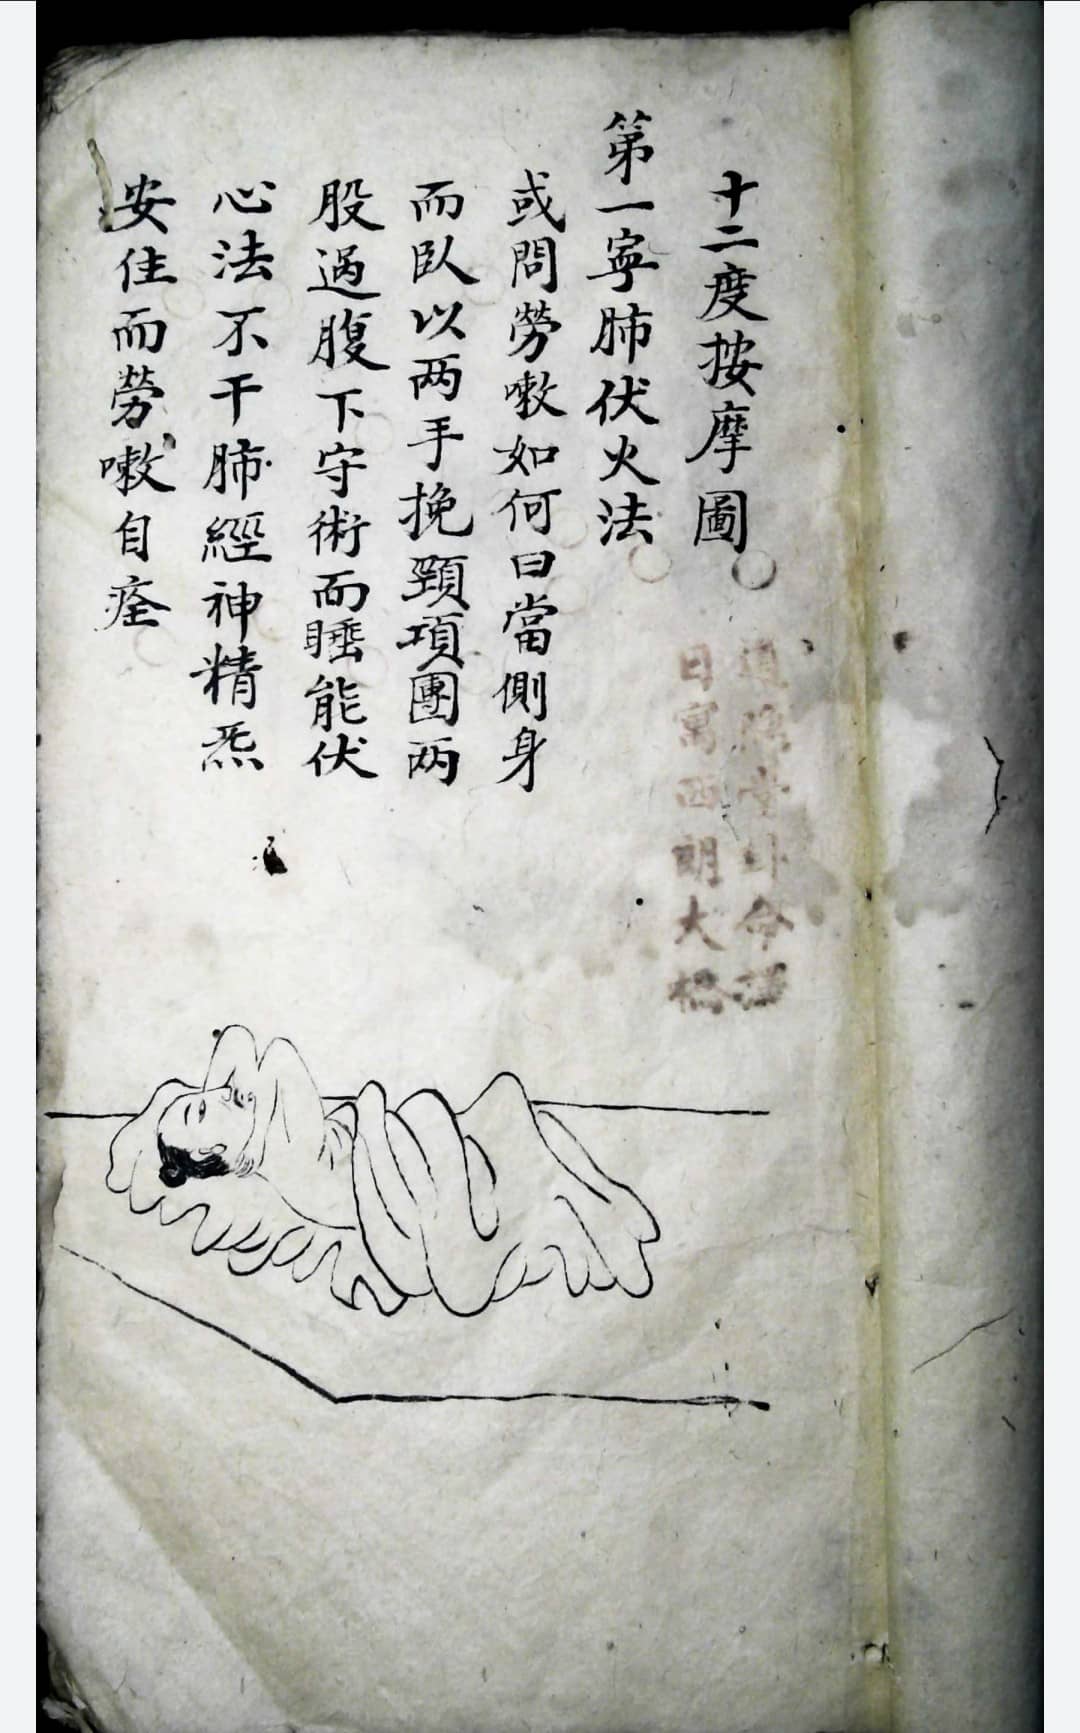 十二度按摩圖
第一寧肺伏火法
或問勞嗽如何曰當側身
而臥以两手挽頸項團两
股過腹下守術而睡能伏
心法不干肺經神精炁
安住而勞嗽自痊
命
日寓西朗大橋